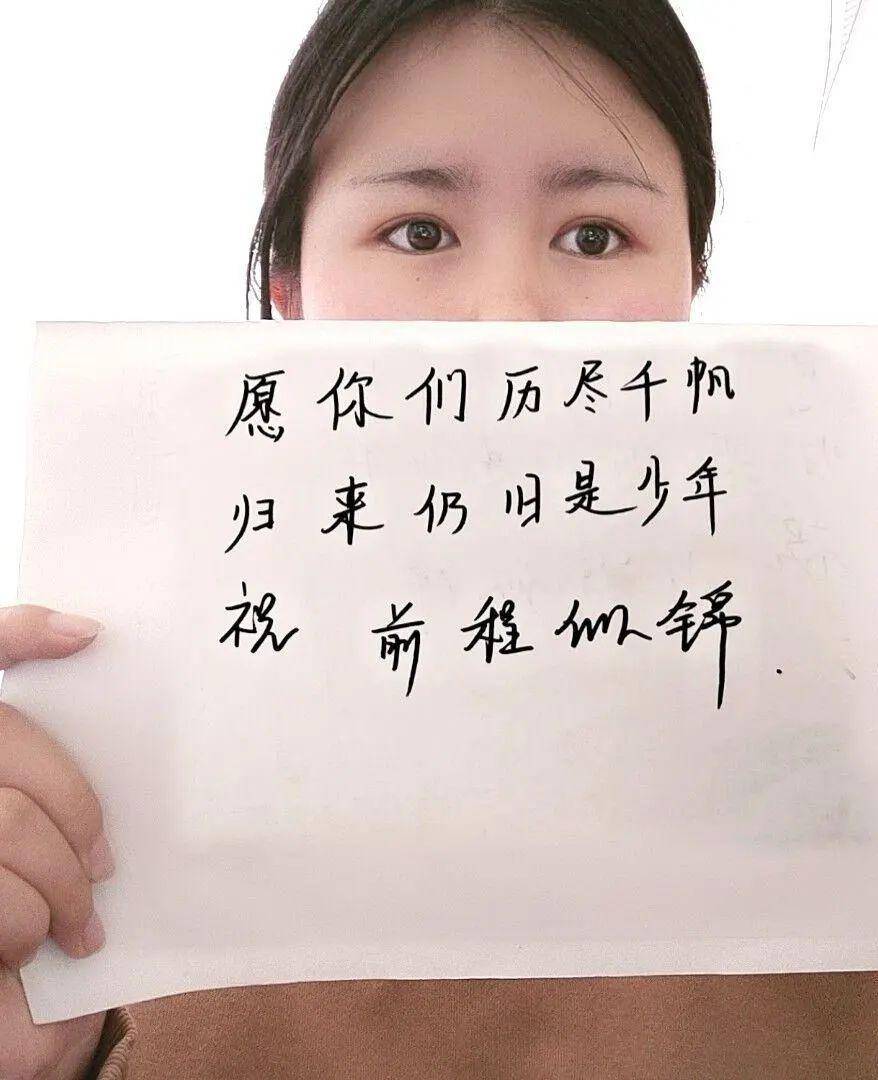 愿你们历尽千帆
归来仍旧是少年
祝 前程似锦.